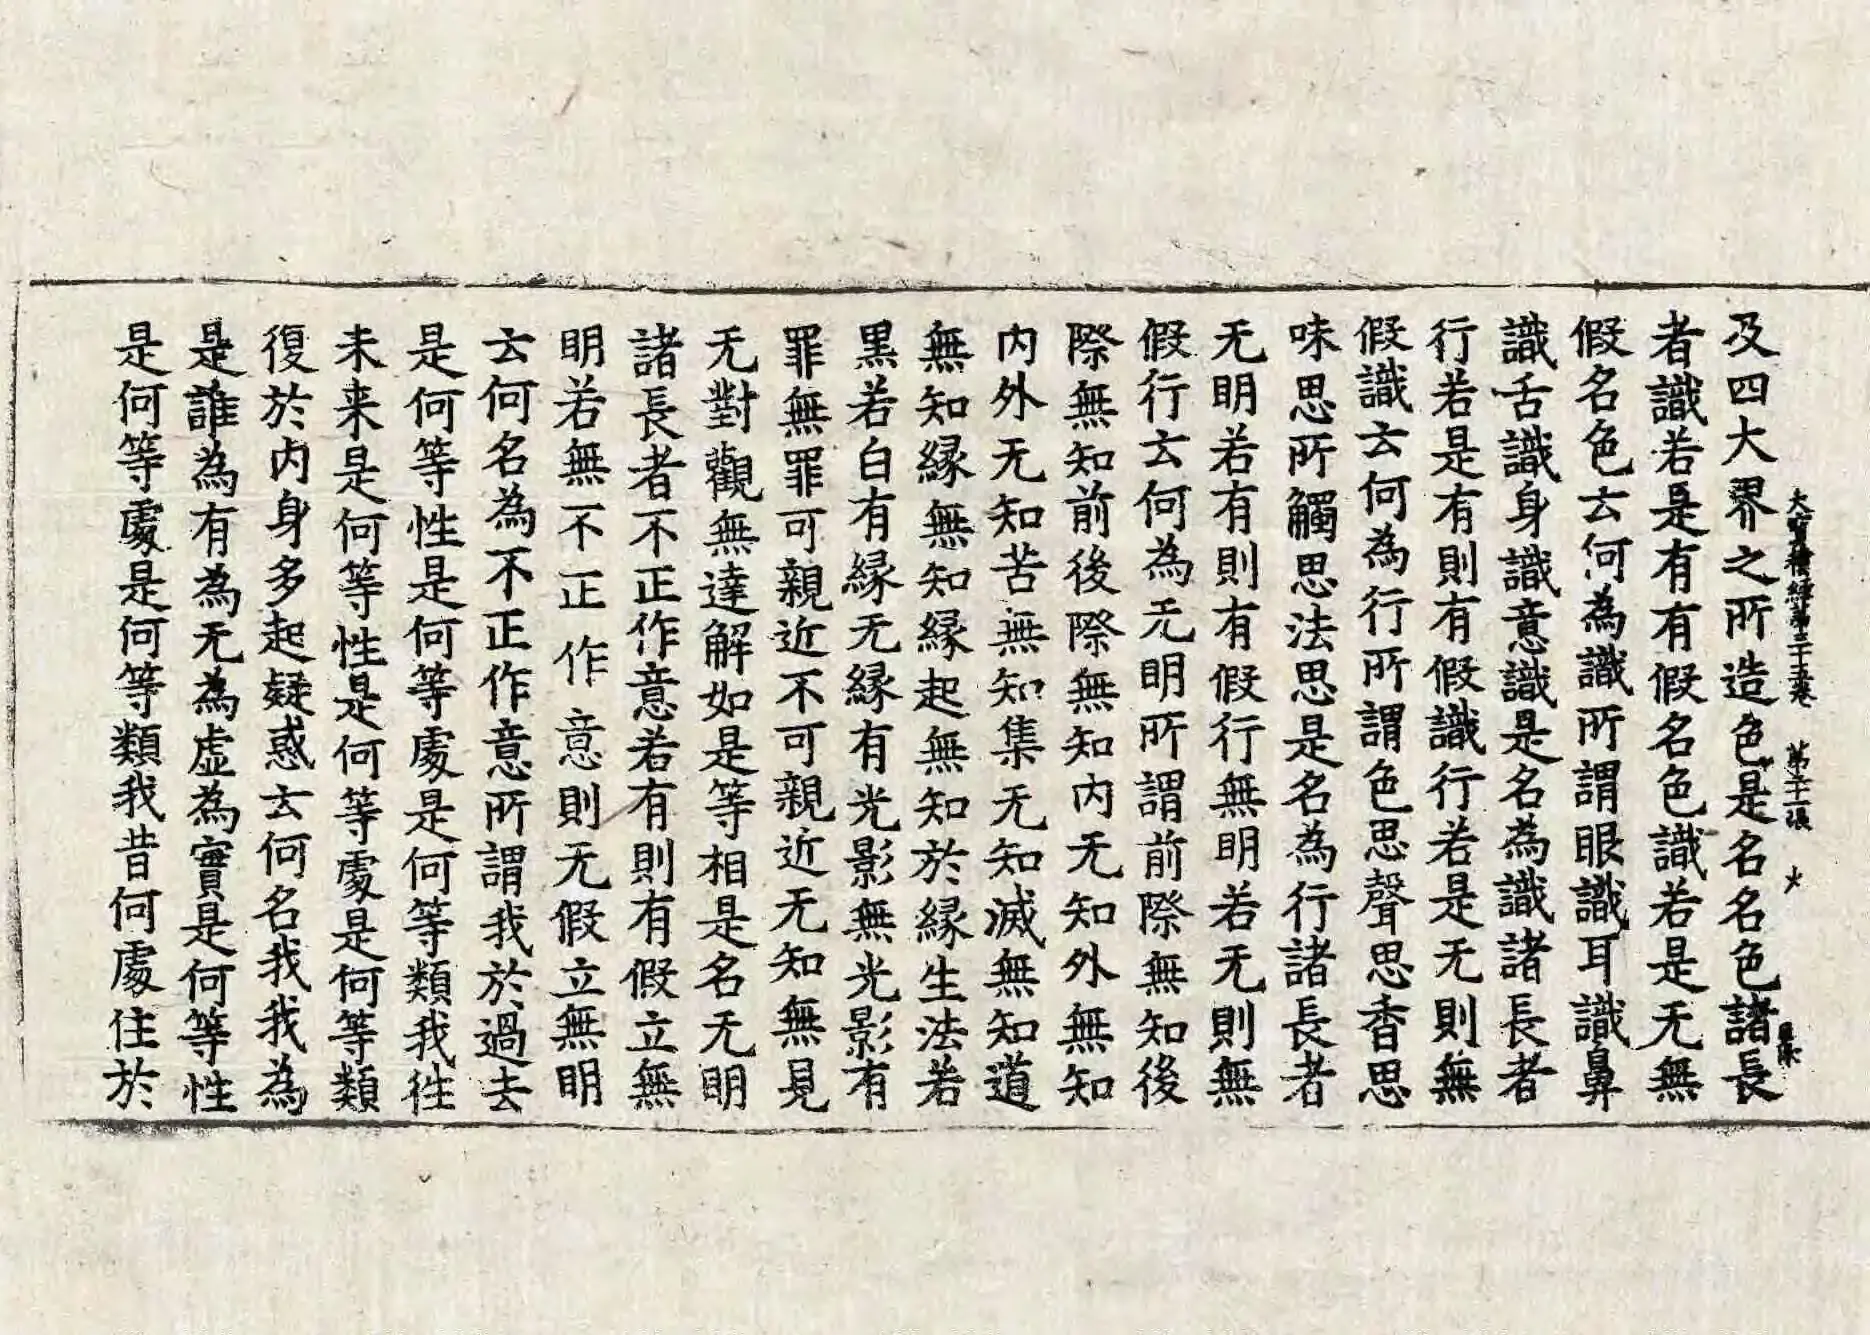 大寶積經第三十五卷 第二十一張 火
及四大界之所造色是名名色諸長
者識若是有有假名色識若是无無
假名色云何為識所謂眼識耳識鼻
識舌識身識意識是名為識諸長者
行若是有則有假識行若是无則無
假識云何為行所謂色思聲思香思
味思所觸思法思是名為行諸長者
无明若有則有假行無明若无則無
假行云何為无明所謂前際無知後
際無知前後際無知内无知外無知
内外无知苦無知集无知滅無知道
無知縁無知縁起無知於縁生法若
黒若白有縁无縁有光影無光影有
罪無罪可親近不可親近无知無見
无對觀無達解如是等相是名无明
諸長者不正作意若有則有假立無
明若無不正作意則无假立無明
云何名為不正作意所謂我於過去
是何等性是何等處是何等類我徃
未来是何等性是何等處是何等類
復於内身多起疑惑云何名我我為
是誰為有為无為虚為實是何等性
是何等處是何等類我昔何處住於